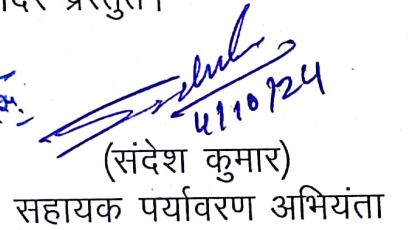 प्रस्तुत।
4/10/24
(संदेश कुमार)
सहायक पर्यावरण अभियंता